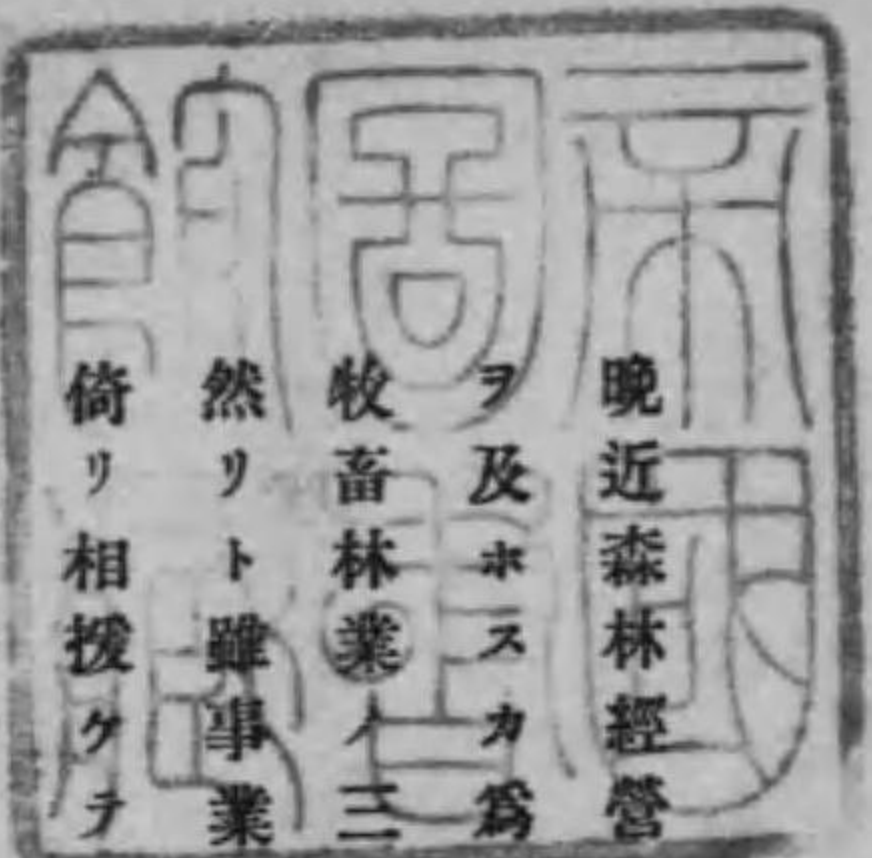 帝國
圖書
館藏
晩近森林經營
ヲ及ホスカ爲
牧畜林業ノ三
然リト雖事業
倚リ相援ケテ